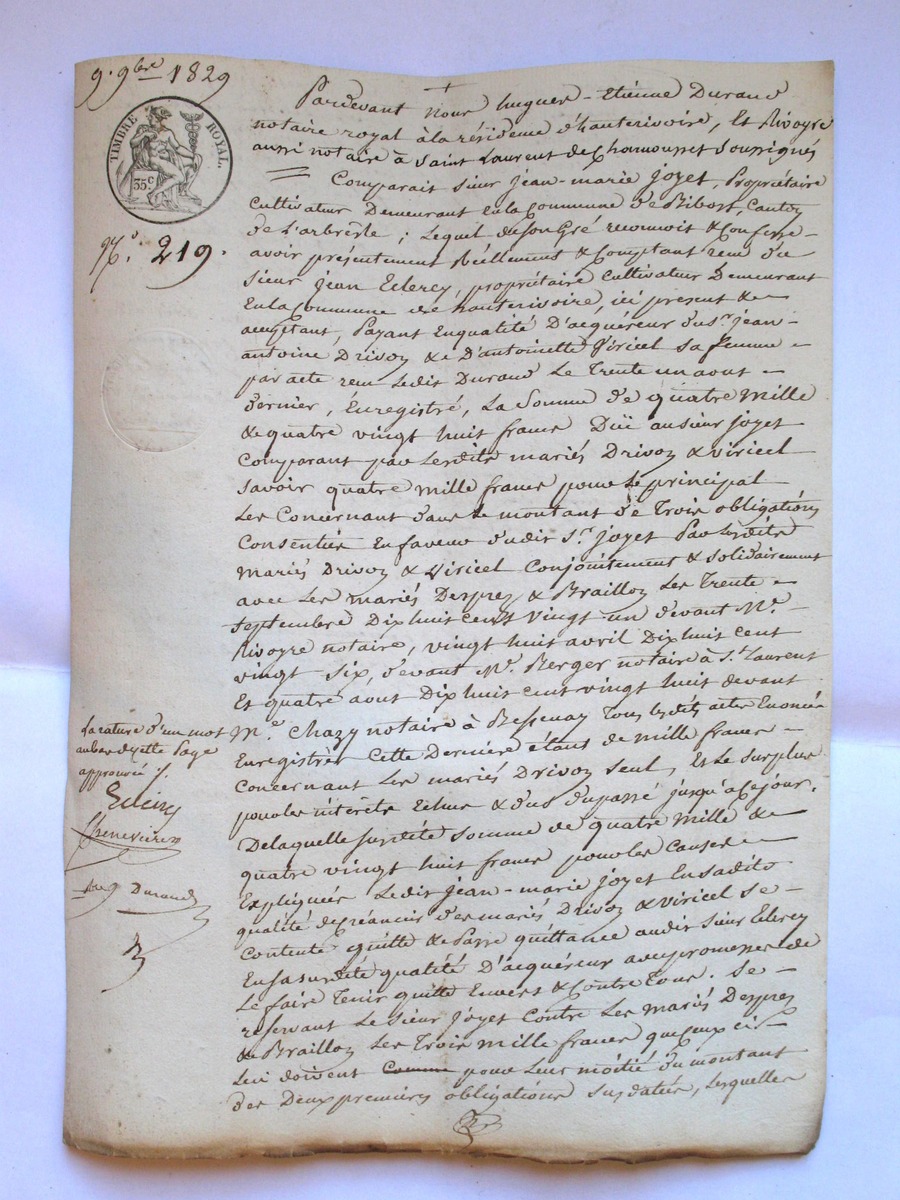 9. 9bre 1829
TIMBRE ROYAL.
35 c
No. 219.
Pardevant Nous hugues-Etienne Durand
notaire royal à la résidence d'hauterivoire, Et Rivoyre
aussi notaire à Saint Laurent de Chamousset Soussignés
Comparait Sieur Jean-marie joyet, Propriétaire
Cultivateur Demeurant En la Commune de Bibost, Canton
de L'arbresle; Lequel de son Gré reconnoit & Confesse
avoir présentement Réellement & Comptant reçu du
Sieur Jean Eclercy, propriétaire Cultivateur Demeurant
En la Commune de hauterivoire, ici présent &
acceptant, Payant En qualité D'acquéreur du sr. jean-
antoine Drivon & D'antoinette Viricel Sa femme
par acte reçu Ledit Durand Le Trente un aout
dernier, Enregistré, La Somme de quatre Mille
& quatre vingt huit francs Düe au sieur joyet
Comparant par Lesdits mariés Drivon & viricel
Savoir quatre mille francs pour le principal
Les Concernant dans le montant de Trois obligations
Consenties En faveur dudit Sr. joyet Par lesdits
mariés Drivon & Viricel Conjointement & Solidairement
avec Les mariés Desprez & Braillon Les Trente
Septembre Dix huit cent Vingt-un devant Me.
Rivoyre notaire, vingt huit avril Dix huit cent
vingt Six, devant Me. Berger notaire à St. Laurent
Et quatre aout Dix huit cent vingt huit devant
Me. Chazy notaire à Bessenay Tous lesdits actes Enoncés
Enregistrés Cette Dernière étant de mille francs
Concernant Les mariés Drivon Seul, Et Le Surplus
pour les intérêts Echus & dus du passé jusqu'à Ce jour.
De laquelle Susdite Somme de quatre Mille &
quatre vingt huit francs pour les Causes
Expliquées Ledit Jean-marie joyet En sadite
qualité de créancier des mariés Drivon & viricel Se
Contente quitte & Passe quittance audit Sieur Eclercy
En sa susdite qualité D'acquéreur avec promesse de
Le faire Tenir quitte Envers & Contre Tous. Se
réservant Le Sieur Joyet Contre Les mariés Desprez
& Braillon Les Trois mille francs que ceux ci
Lui doivent Comme pour Leur moitié du montant
des Deux premières obligations Susdatées, Lesquelles
La rature d'un mot
au bas de cette Page
approuvée
Durand